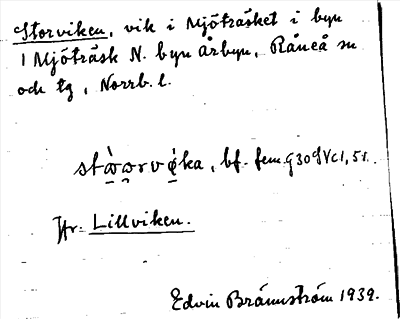 Storviken, vik i Mjöträsket i byn
Mjöträsk N. byn Årbyn, Råneå sn
och tg, Norrb. l.
bf. fem.
Jfr. Lillviken.
Edvin Brännström 1939.